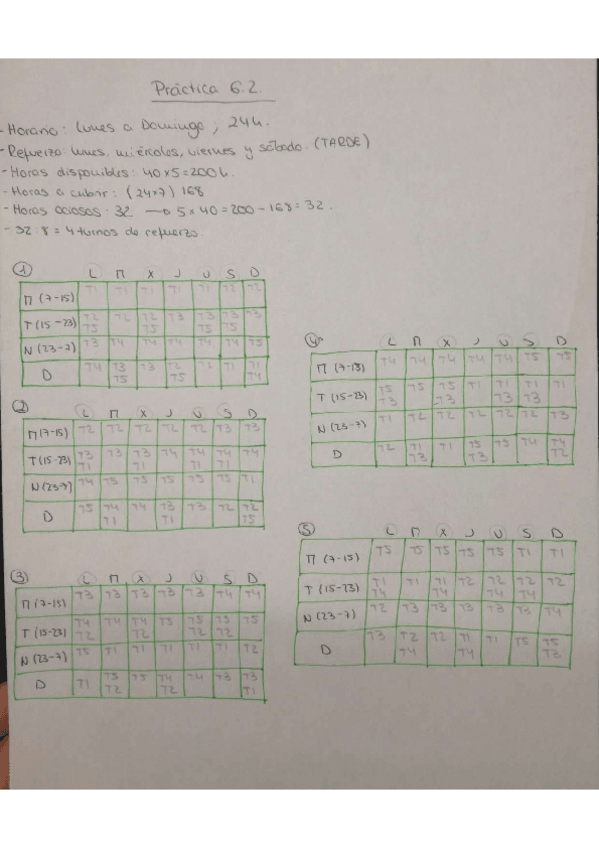 Práctica 6.2.
- Horario: lunes a Domingo; 24h.
- Refuerzo: lunes, miércoles, viernes y sábado. (TARDE)
- Horas disponibles: 40x5=200h.
- Horas a cubrir: (24x7) 168
- Horas ociosas: 32 → 5x40=200-168=32.
- 32:8=4 turnos de refuerzo.
①
L M X J V S D
M (7-15) T1 T1 T1 T1 T1 T2 T2
T (15-23) T2 T2 T2 T3 T3 T3 T3
T5 T5 T5 T5
N (23-7) T3 T4 T4 T4 T4 T4 T5
D T4 T3 T3 T2 T2 T1 T1
T5 T5 T4
②
L M X J V S D
M (7-15) T2 T2 T2 T2 T2 T3 T3
T (15-23) T3 T3 T3 T4 T4 T4 T4
T1 T1 T1 T1
N (23-7) T4 T5 T5 T5 T5 T5 T1
D T5 T4 T4 T3 T3 T2 T2
T1 T1 T5
③
L M X J V S D
M (7-15) T3 T3 T3 T3 T3 T4 T4
T (15-23) T4 T4 T4 T5 T5 T5 T5
T2 T2 T2 T2
N (23-7) T5 T1 T1 T1 T1 T1 T2
D T1 T5 T5 T4 T4 T3 T3
T2 T2 T1
④
L M X J V S D
M (7-15) T4 T4 T4 T4 T4 T5 T5
T (15-23) T5 T5 T5 T1 T1 T1 T1
T3 T3 T3 T3
N (23-7) T1 T2 T2 T2 T2 T2 T3
D T2 T1 T1 T5 T5 T4 T4
T3 T3 T2
⑤
L M X J V S D
M (7-15) T5 T5 T5 T5 T5 T1 T1
T (15-23) T1 T1 T1 T2 T2 T2 T2
T4 T4 T4 T4
N (23-7) T2 T3 T3 T3 T3 T3 T4
D T3 T2 T2 T1 T1 T5 T5
T4 T4 T3